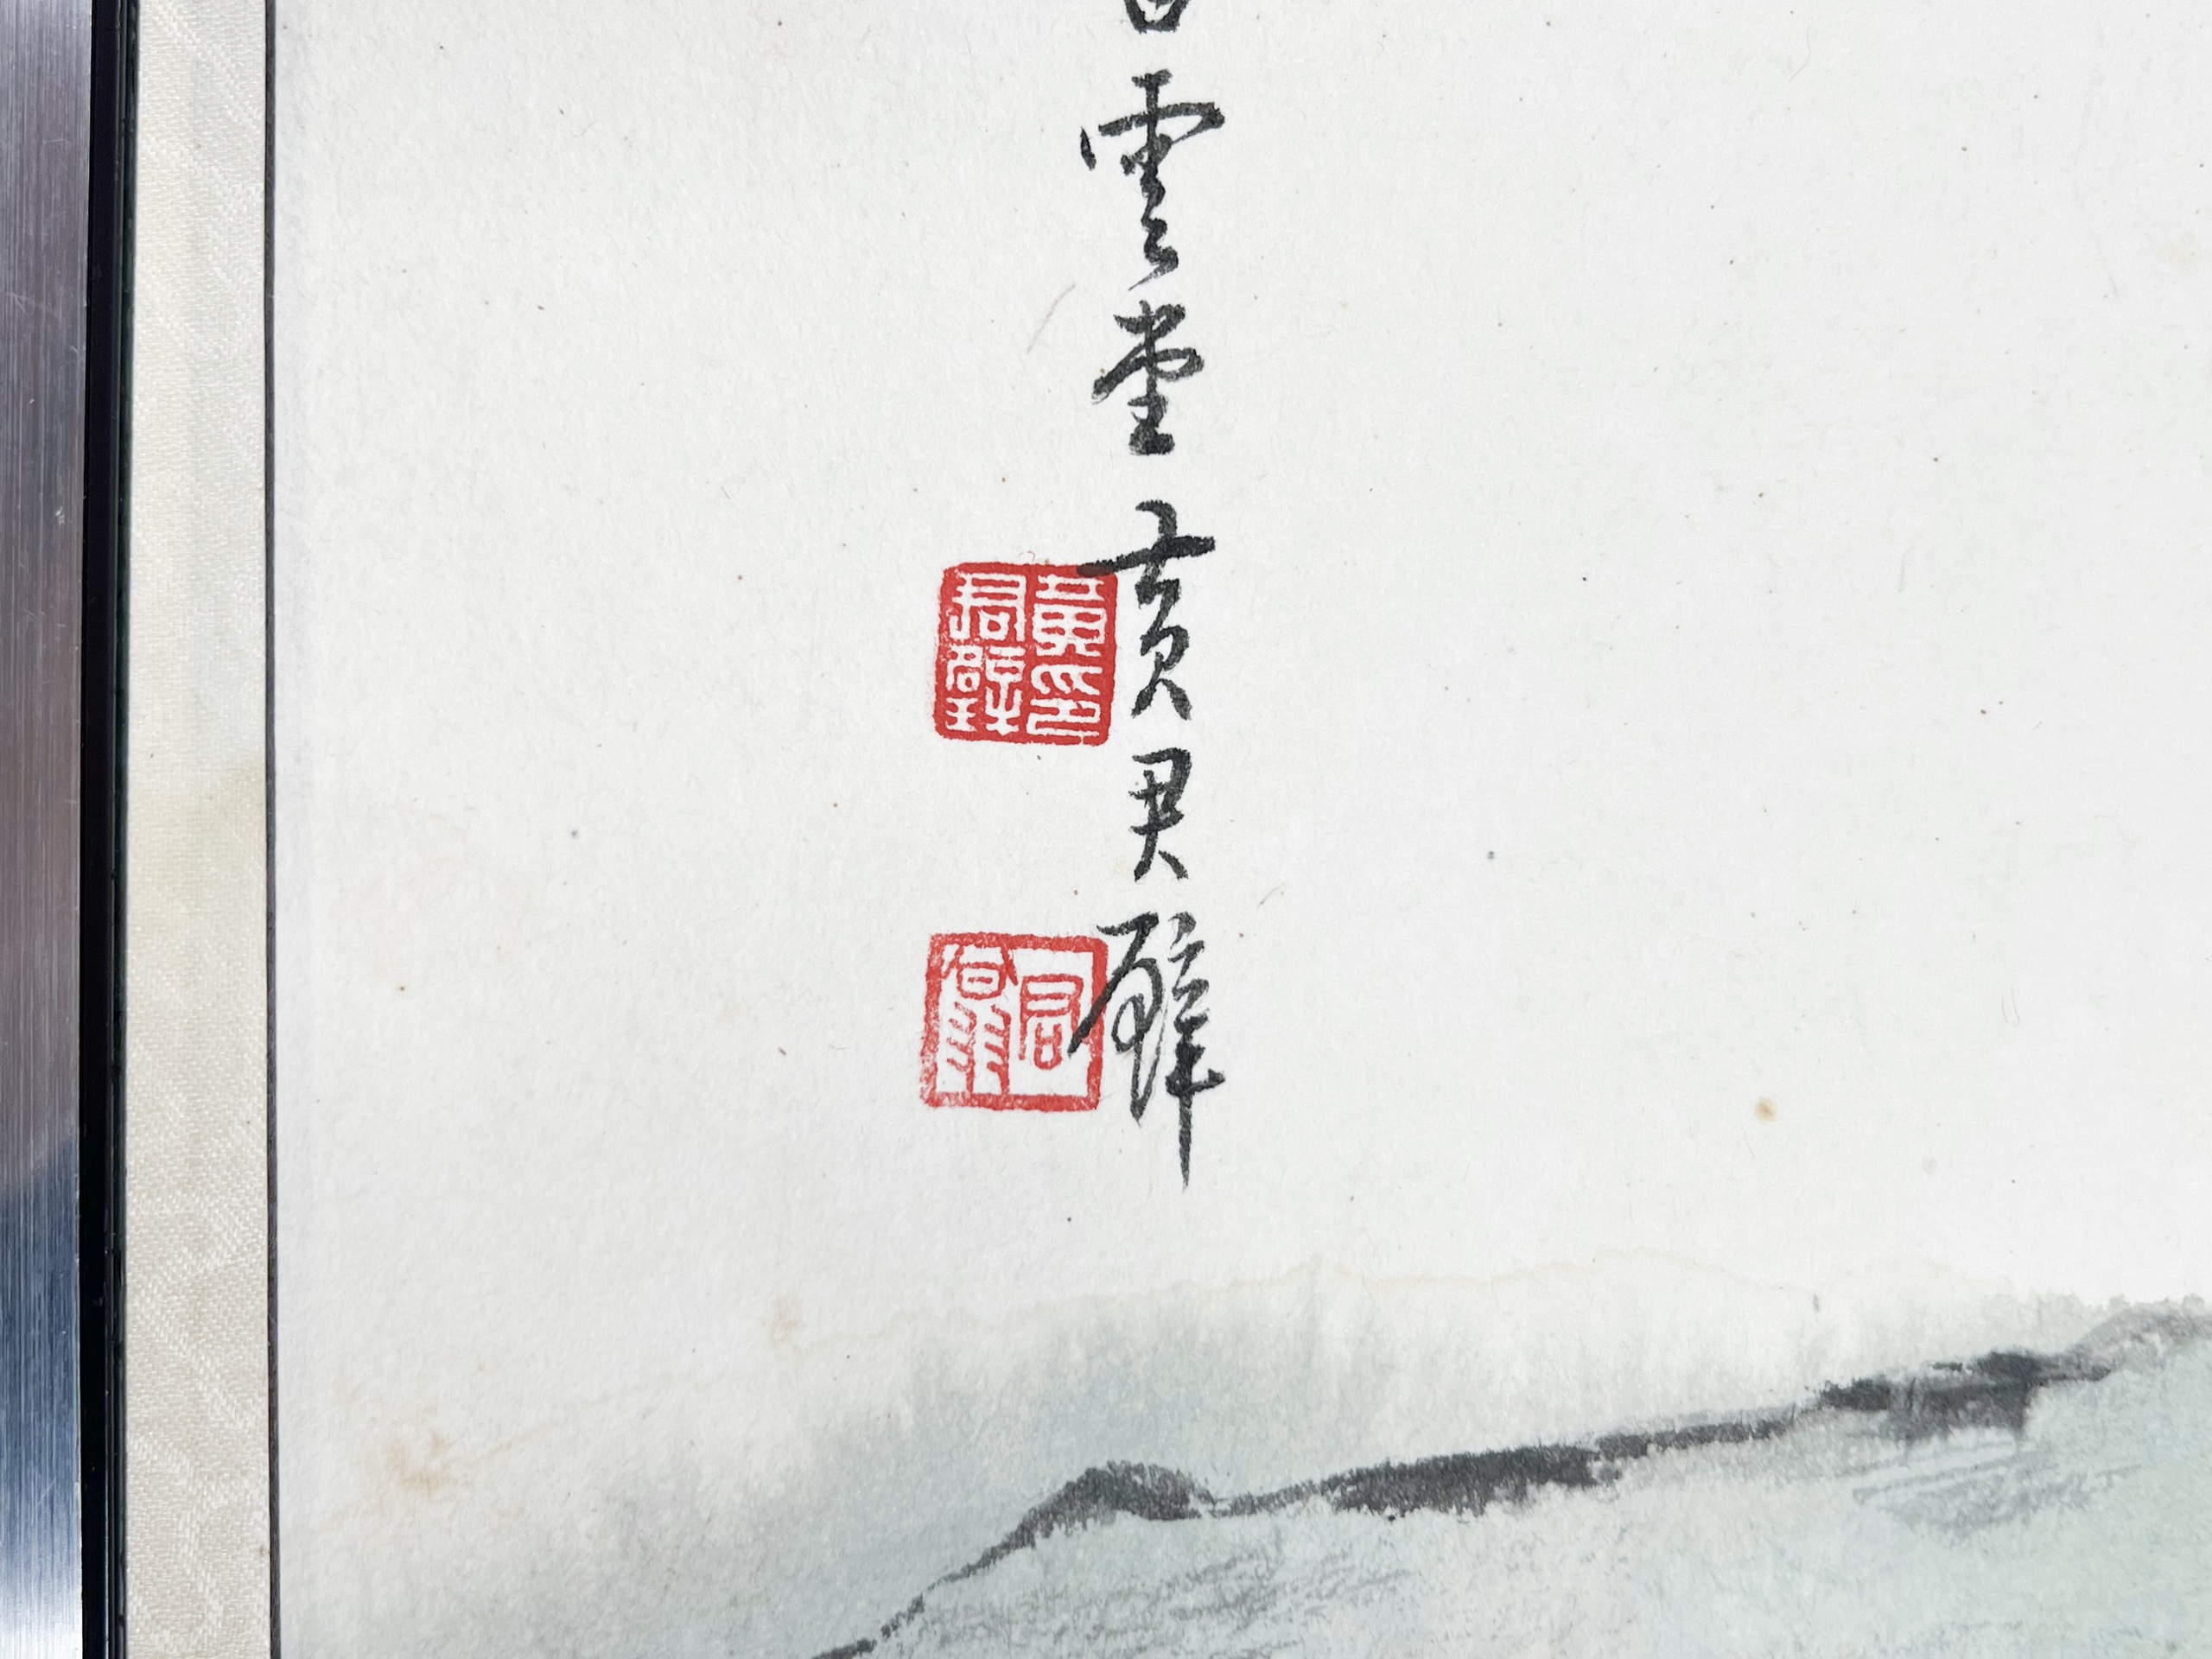 雲堂黃君璧
黃印
君璧
君翁